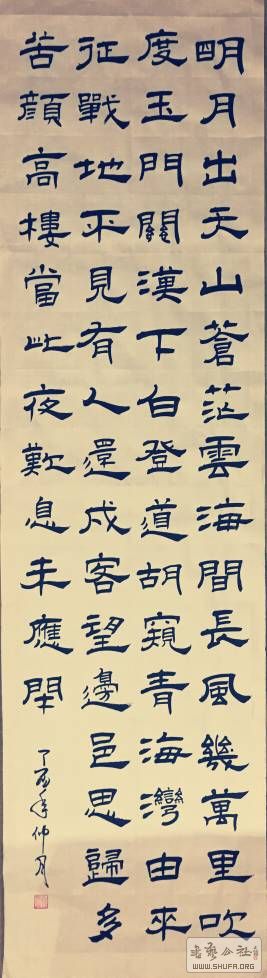 明月出天山蒼茫雲海間長風幾萬里吹
度玉門關漢下白登道胡窺青海灣由來
征戰地平見有人還戍客望邊邑思歸多
苦顏高樓當此夜歎息未應閑
丁酉年仲月
書藝公社
WWW.SHUFA.ORG